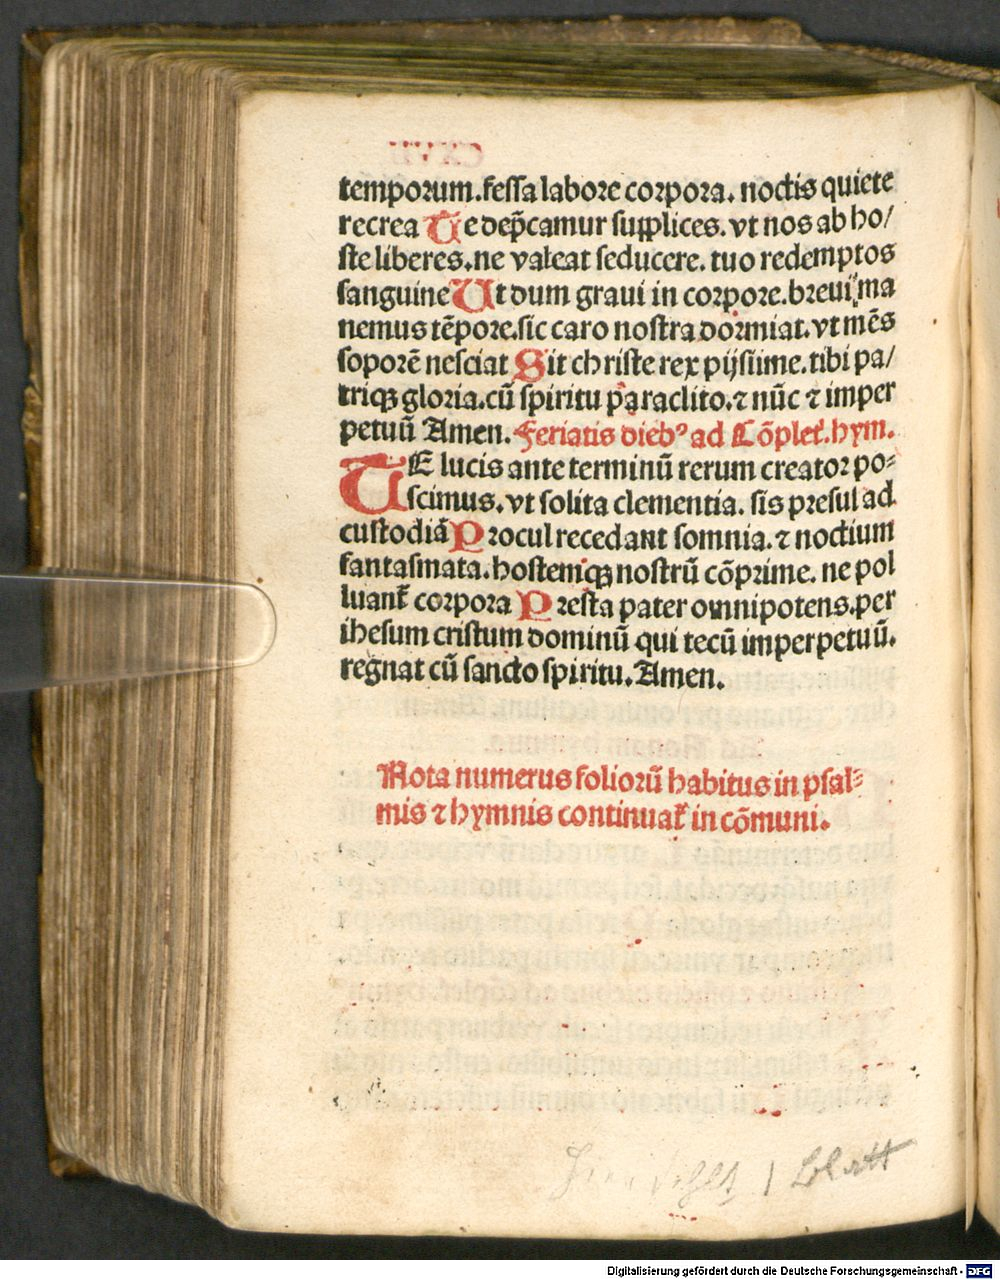 temporum.fessa labore corpora. noctis quiete
recrea Te dep̄camur supplices. vt nos ab ho/
ste liberes.ne valeat seducere. tuo redemptos
sanguine Ut dum graui in corpore.breui ma
nemus tēpore.sic caro nostra dormiat.vt mēs
soporē nesciat Sit christe rex pijssime.tibi pa/
triqꝫ gloria.cū spiritu paraclito.⁊ nūc ⁊ imper
petuū Amen. Feriatis diebꝰ ad Cōplet.hym.
TE lucis ante terminū rerum creator po-
scimus. vt solita clementia. sis presul ad
custodiā Procul recedant somnia. ⁊ noctium
fantasmata. hostemqꝫ nostrū cōprime. ne pol
luant corpora Presta pater omnipotens.per
ihesum cristum dominū qui tecū imperpetuū.
regnat cū sancto spiritu. Amen.
Nota numerus folioru̅ habitus in psal-
mis ⁊ hymnis continuat in cōmuni.
1 Blatt
Digitalisierung gefördert durch die Deutsche Forschungsgemeinschaft - DFG